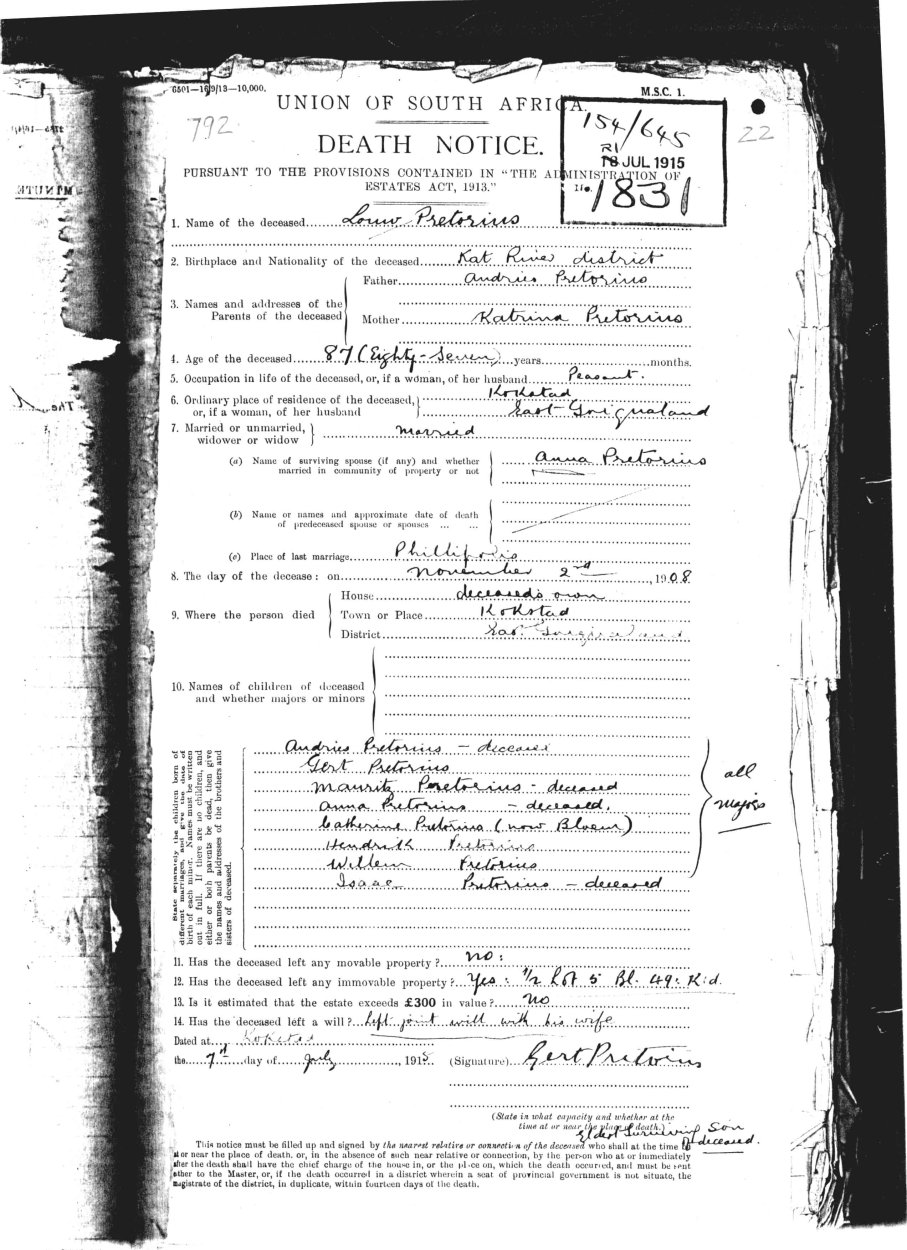 6501—16/9/13—10,000.
M.S.C. 1.
UNION OF SOUTH AFRICA.
792
154/645
22
DEATH NOTICE.
RI
18 JUL 1915
PURSUANT TO THE PROVISIONS CONTAINED IN "THE ADMINISTRATION OF
ESTATES ACT, 1913."
No. 1831
1. Name of the deceased Louw Pretorius
2. Birthplace and Nationality of the deceased Kat River district
3. Names and addresses of the Parents of the deceased
Father Andries Pretorius
Mother Katrina Pretorius
4. Age of the deceased 87 (Eighty-Seven) years months.
5. Occupation in life of the deceased, or, if a woman, of her husband Peasant.
6. Ordinary place of residence of the deceased, Kokstad
or, if a woman, of her husband East Griqualand
7. Married or unmarried, widower or widow married
(a) Name of surviving spouse (if any) and whether Anna Pretorius
married in community of property or not
(b) Name or names and approximate date of death
of predeceased spouse or spouses ... ...
(c) Place of last marriage Phillipolis
8. The day of the decease: on November 2nd, 1908
9. Where the person died
House deceased's own
Town or Place Kokstad
District East Griqualand
10. Names of children of deceased
and whether majors or minors
State separately the children born of
different marriages, and give the date of
birth of each minor. Names must be written
out in full. If there are no children, and
either or both parents be dead, then give
the names and addresses of the brothers and
sisters of deceased.
Andries Pretorius - deceased
Gert Pretorius
Mauritz Peretorius - deceased
Anna Pretorius - deceased.
Catherine Pretorius (now Bloem)
Hendrik Pretorius
Willem Pretorius
Isaac Pretorius - deceased
all
majors
11. Has the deceased left any movable property? No:
12. Has the deceased left any immovable property? Yes: 1/2 Lot 5 Bl. 49: K:d.
13. Is it estimated that the estate exceeds £300 in value? No
14. Has the deceased left a will? Left joint will with his wife
Dated at Kokstad
the 7th day of July, 1915. (Signature) Gert Pretorius
(State in what capacity and whether at the
time at or near the place of death.)
Eldest Surviving Son
of deceased.
This notice must be filled up and signed by the nearest relative or connection of the deceased who shall at the time be
at or near the place of death, or, in the absence of such near relative or connection, by the person who at or immediately
after the death shall have the chief charge of the house in, or the place on, which the death occurred, and must be sent
either to the Master, or, if the death occurred in a district wherein a seat of provincial government is not situate, the
magistrate of the district, in duplicate, within fourteen days of the death.